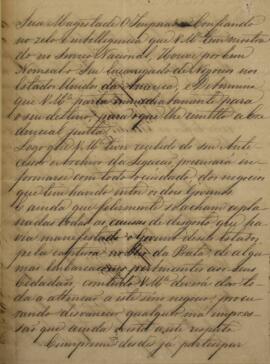 Sua Magestade O Imperador Confiando
no zelo e intelligencia que V. Mce. tem mostra
do no Serviço Nacional, Houve por bem
Nomealo Seu Encarregado de Negocios nos
Estados Unidos da America, e Determina
que V. Mce. parta immediatamente para
o seu destino, para o que lhe remetto a
Credencial junta.
Logo que V. Mce. tiver recebido do seu Ante
cessor o Archivo da Legação procurará in
formarse com todo o cuidado, dos negocios
que tem havido entre os dous Governos
e ainda que felizmente se achem apla
nadas todas as causas de desgosto que ha
via manifestado o Governo desses Estados,
pela captura no Rio da Prata de algu
mas Embarcações pertencentes aos Seus
Cidadãos, com tudo V. Mce. deverá dar to
da a attenção a este negocio, procu
rando desvanecer qualquer má impres
são que ainda exista a este respeito.
Cumpre-me desde já participar